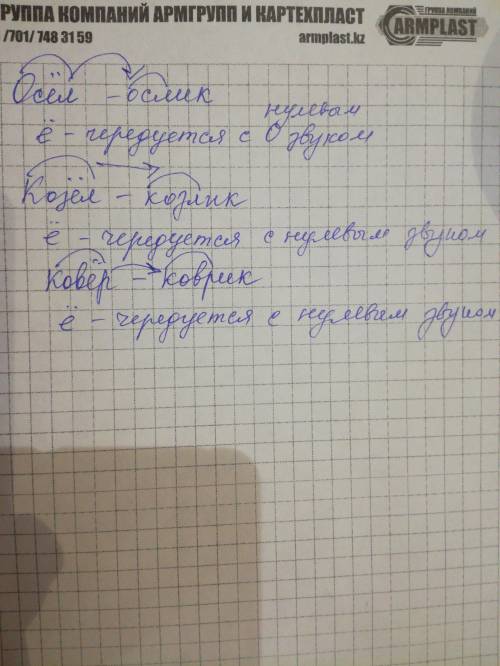 РУППА КОМПАНИЙ АРМГРУПП И КАРТЕХПЛАСТ
/701/ 748 31 59 armplast.kz
ГРУППА КОМПАНИЙ
ARMPLAST
Осёл – ослик
нулевым
ё – чередуется с 0 звуком
Козёл – козлик
ё – чередуется с нулевым звуком
Ковёр – коврик
ё – чередуется с нулевым звуком